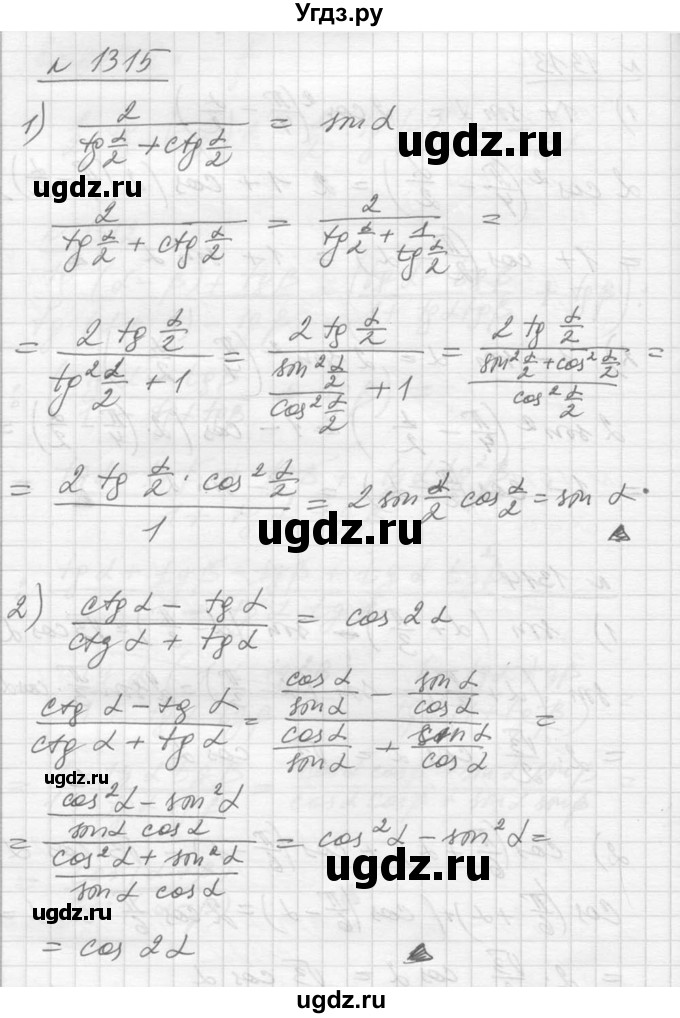 Угдз.ру
№ 1315
1) 2 / (tg α/2 + ctg α/2) = sin α
ugdz.ru
ugdz.ru
2 / (tg α/2 + ctg α/2) = 2 / (tg α/2 + 1 / tg α/2) =
= 2 tg α/2 / (tg² α/2 + 1) = 2 tg α/2 / (sin² α/2 / cos² α/2 + 1) = 2 tg α/2 / ((sin² α/2 + cos² α/2) / cos² α/2) =
= 2 tg α/2 · cos² α/2 / 1 = 2 sin α/2 cos α/2 = sin α.
ugdz.ru
2) (ctg α - tg α) / (ctg α + tg α) = cos 2α
(ctg α - tg α) / (ctg α + tg α) = (cos α / sin α - sin α / cos α) / (cos α / sin α + sin α / cos α) =
ugdz.ru
= ((cos² α - sin² α) / (sin α cos α)) / ((cos² α + sin² α) / (sin α cos α)) = cos² α - sin² α =
ugdz.ru
ugdz.ru
= cos 2α
ugdz.ru